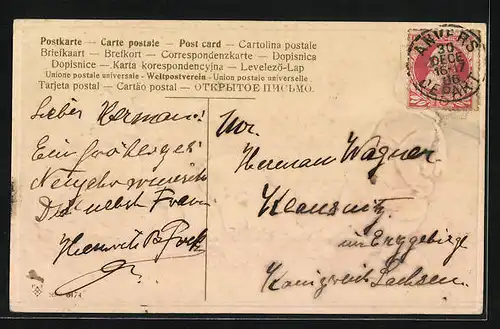 Postkarte — Carte postale — Post card — Cartolina postale
Briefkaart — Brefkort — Correspondenzkarte — Dopisnica
Dopisnice — Karta korespondencyjna — Levelező-Lap
Unione postale universale — Weltpostverein — Union postale universelle
Tarjeta postal — Cartão postal — ОТКРЫТОЕ ПИСЬМО.
ANVERS
30
DECE
DEPART
Lieber Herman!
Ein fröhliges
Neujahr wünscht
Dir nebst Frau
Heinrich
Herman Wagner
Klausnitz
im Erzgebirge
Königreich Sachsen.